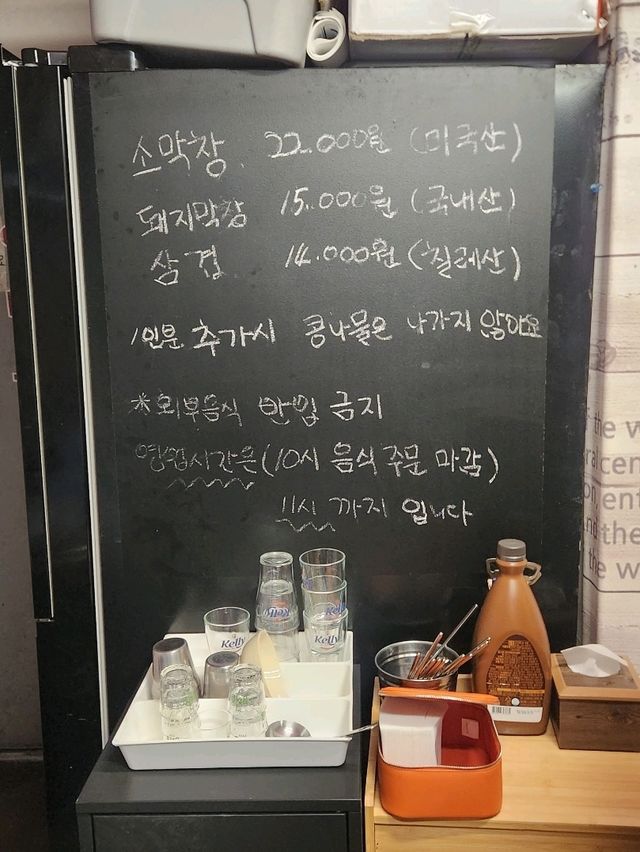 소막창. 22.000원 (미국산)
돼지막창 15.000원 (국내산)
삼겹 14.000원 (칠레산)
1인분 추가시 콩나물은 나가지 않아요
*외부음식 반입 금지
영업시간은 (10시 음식 주문 마감)
11시 까지 입니다
Kelly
Kelly
Kelly
the w
cen
ent
the
the w